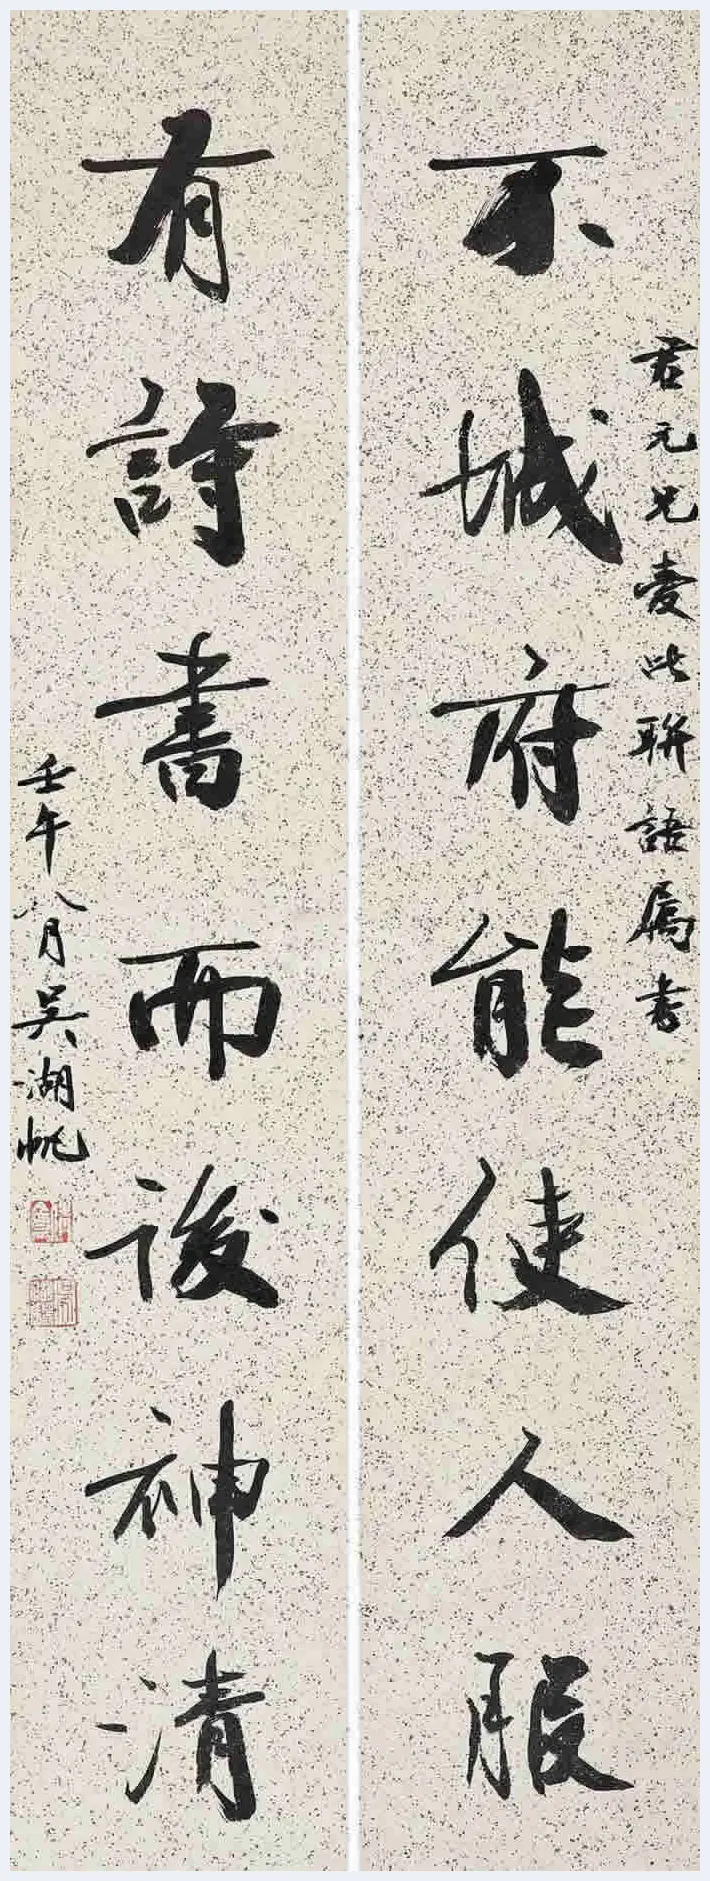 君元兄爱此聯語属书
不城府能使人服
有詩書而後神清
壬午八月吴湖帆